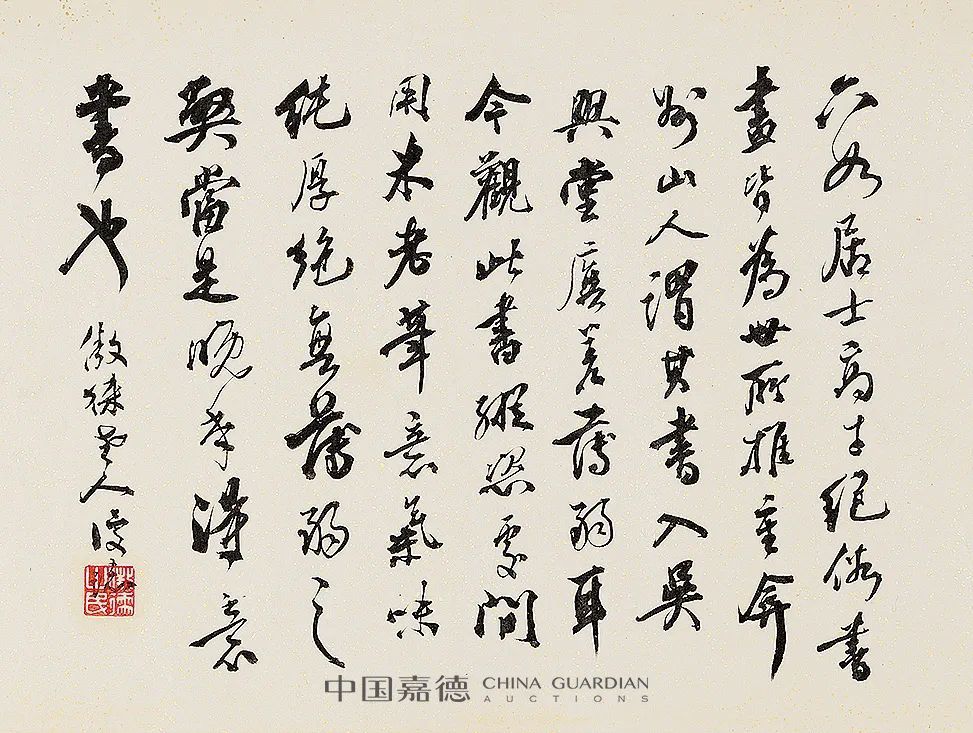 六如居士高才絕俗書
畫皆為世所推重弇
州山人謂其書入吳
興堂廡差薄弱耳
今觀此書縱恣處間
用米老筆意氣味
純厚絕無薄弱之
弊當是晚年得意
書也
傲徠人
中国嘉德 CHINA GUARDIAN
AUCTIONS